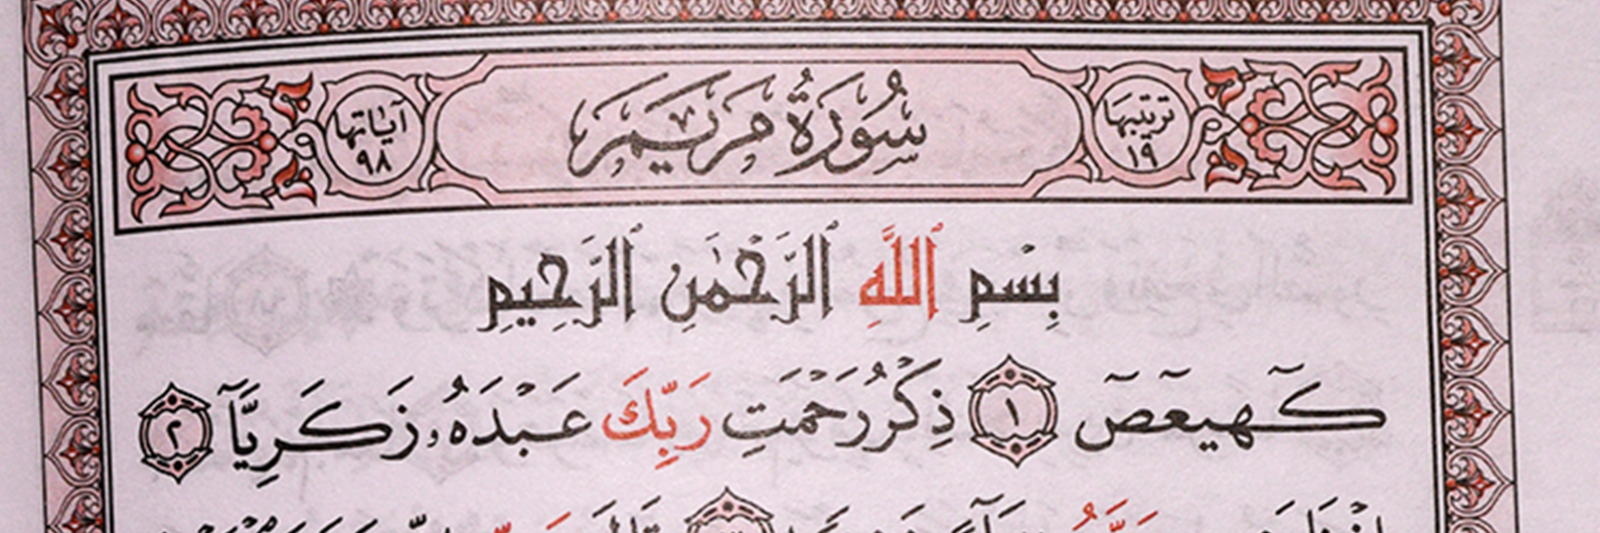 ترتيبها ١٩
سُورَةُ مَرْيَمَ
آياتها ٩٨
بِسْمِ ٱللَّهِ ٱلرَّحْمَٰنِ ٱلرَّحِيمِ
كٓهيعٓصٓ ١ ذِكْرُ رَحْمَتِ رَبِّكَ عَبْدَهُۥ زَكَرِيَّآ ٢